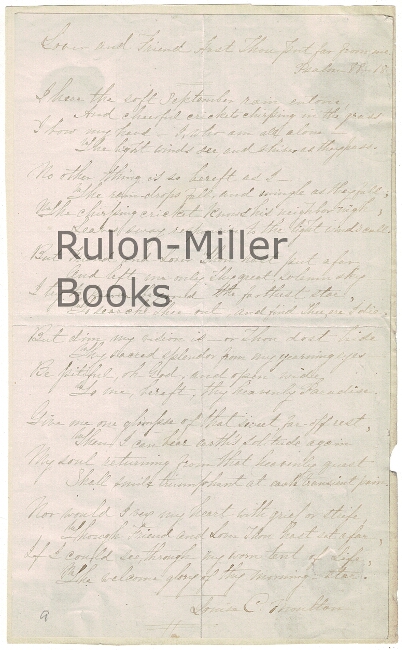 Lover and Friend hast Thou put far from me
Psalm 88-18
I hear the soft September rain intone,
And cheerful crickets chirping in the grass
I bow my head, I, who am all alone
The light winds see and shiver as they pass.
No other thing is so bereft as I
The rain-drops fall and mingle as they fall,
The chirping cricket knows his neighbor nigh,
Leaves the light winds call
But Friend and Lover Thou hast put afar,
And left me only Thy great solemn sky
I try to the farthest star,
To search Thee out, and find Thee
But dim my vision is or Thou dost hide
Thy sacred splendor from my yearning eyes
Be pitiful, oh God, and open wide,
To me, bereft, Thy heavenly Paradise,
Give me one glimpse of that sweet, far-off rest,
Then I can bear earth's solitude again
My soul returning from that heavenly quest
Shall smile triumphant at each transient pain.
Nor would I vex my heart with grief or strife,
Though Friend and Love Thou hast set afar,
If I could see through my worn tent of Life,
The welcome glory of thy morning-star.
Louise C. Moulton
Rulon-Miller
Books